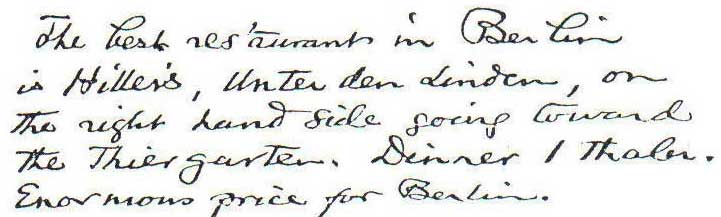 The best res'taurant in Berlin
is Hiller's, Unter den Linden, on
the right hand side going toward
the Thiergarten. Dinner 1 thaler.
Enormous price for Berlin.